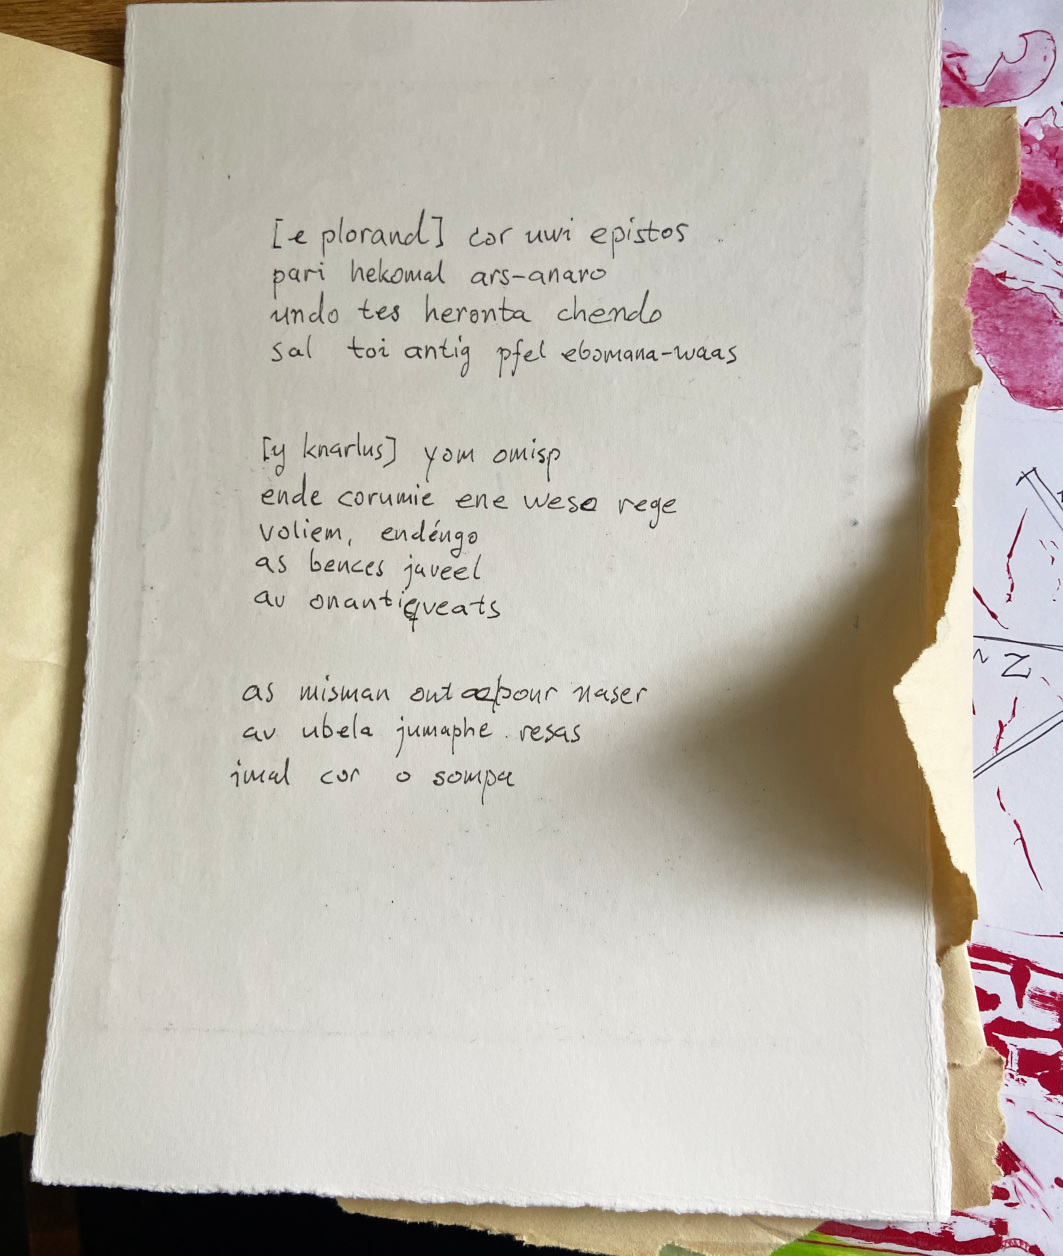 [e plorand] cor uwi epistos
pari hekomal ars-anaro
undo tes heronta chendo
sal toi antig pfel ebomana-waas
[y knarlus] yom omisp
ende corumie ene wese rege
voliem, endéngo
as bences javeel
av onantiqveats
as misman out pour naser
av ubela jumaphe resas
imal cor o sompa